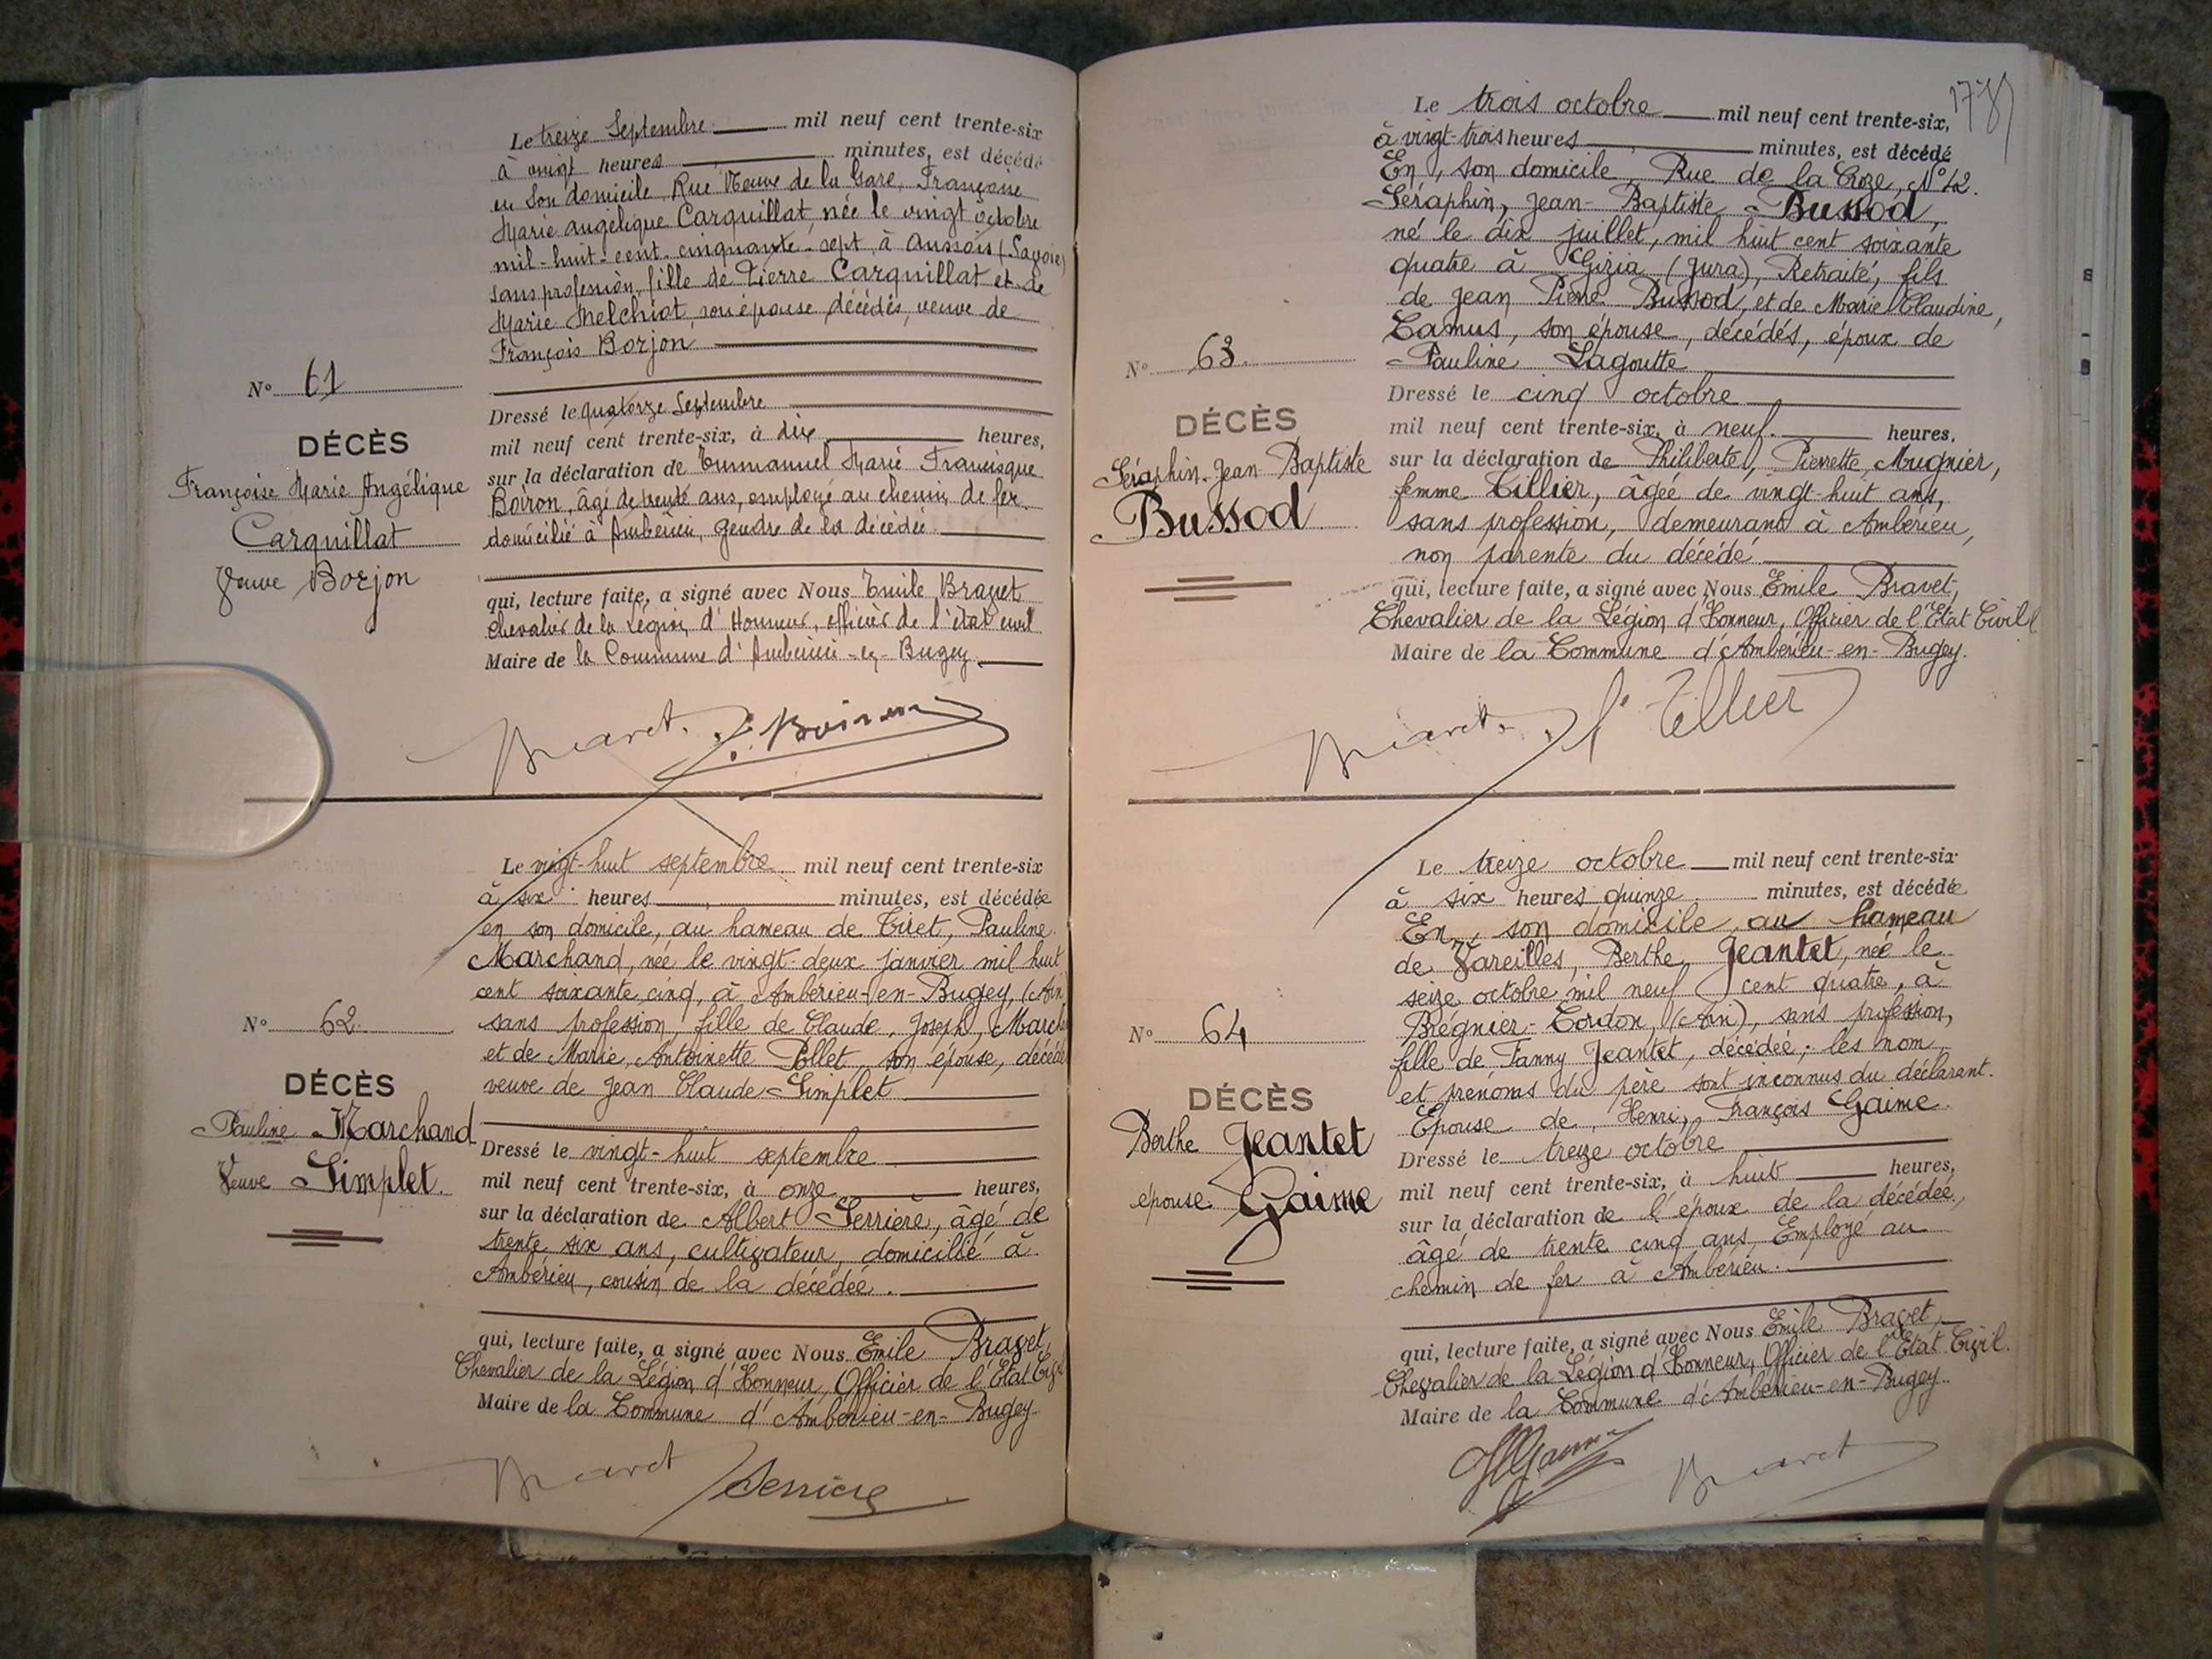 Le treize Septembre mil neuf cent trente-six
à vingt heures minutes, est décédé
en son domicile, Rue Neuve de la Gare, Françoise
Marie Angélique Carquillat, née le vingt octobre
mil-huit-cent-cinquante-sept à Aussois (Savoie)
sans profession, fille de Pierre Carquillat et de
Marie Melchiot, son épouse, décédés, veuve de
François Borjon
N° 61
DÉCÈS
Françoise Marie Angélique
Carquillat
Veuve Borjon
Dressé le quatorze Septembre
mil neuf cent trente-six, à dix heures,
sur la déclaration de Emmanuel Marie Francisque
Boiron, âgé de trente ans, employé au chemin de fer
domicilié à Ambérieu, gendre de la décédée
qui, lecture faite, a signé avec Nous Emile Bravet
Chevalier de la Légion d'Honneur, officier de l'état civil
Maire de la Commune d'Ambérieu-en-Bugey
Bravet. Boiron
Le vingt-huit septembre mil neuf cent trente-six
à six heures minutes, est décédée
en son domicile, au hameau de Tiret, Pauline
Marchand, née le vingt-deux janvier mil huit
cent soixante cinq, à Ambérieu-en-Bugey, (Ain
sans profession, fille de Claude, Joseph, March
et de Marie, Antoinette Pollet, son épouse, décédé
veuve de Jean Claude Simplet
N° 62
DÉCÈS
Pauline Marchand
Veuve Simplet.
Dressé le vingt-huit septembre
mil neuf cent trente-six, à onze heures,
sur la déclaration de Albert Serrière, âgé de
trente six ans, cultivateur, domicilié à
Ambérieu, cousin de la décédée.
qui, lecture faite, a signé avec Nous Emile Bravet,
Chevalier de la Légion d'Honneur, Officier de l'Etat Civil
Maire de la Commune d'Ambérieu-en-Bugey.
Bravet Serrière
Le trois octobre mil neuf cent trente-six,
à vingt-trois heures minutes, est décédé
En, son domicile, Rue de la Croze, N° 42.
Séraphin, Jean-Baptiste Bussod,
né le dix juillet, mil huit cent soixante
quatre à Gizia (Jura), Retraité, fils
de Jean Pierre Bussod, et de Marie Claudine,
Camus, son épouse, décédés, époux de
Pauline Lagoutte
N° 63.
DÉCÈS
Séraphin Jean Baptiste
Bussod
Dressé le cinq octobre
mil neuf cent trente-six, à neuf. heures,
sur la déclaration de Philiberte, Pierrette, Mugnier,
femme Tillier, âgée de vingt-huit ans,
sans profession, demeurant à Ambérieu,
non parente du décédé.
qui, lecture faite, a signé avec Nous Emile Bravet,
Chevalier de la Légion d'Honneur, Officier de l'Etat Civil
Maire de la Commune d'Ambérieu-en-Bugey.
Bravet. Tillier
Le treize octobre mil neuf cent trente-six
à six heures quinze minutes, est décédée
En, son domicile, au hameau
de Vareilles, Berthe Jeantet, née le
seize octobre mil neuf cent quatre, à
Brégnier-Cordon, (Ain), sans profession,
fille de Fanny Jeantet, décédée; les nom
et prénoms du père sont inconnus du déclarant.
Epouse de, Henri, François Gaime.
N° 64
DÉCÈS
Berthe Jeantet
épouse Gaime
Dressé le treize octobre
mil neuf cent trente-six, à huit heures,
sur la déclaration de l'époux de la décédée,
âgé de trente cinq ans, Employé au
chemin de fer à Ambérieu.
qui, lecture faite, a signé avec Nous Emile Bravet,
Chevalier de la Légion d'Honneur, Officier de l'Etat Civil.
Maire de la Commune d'Ambérieu-en-Bugey.
Gaime Bravet